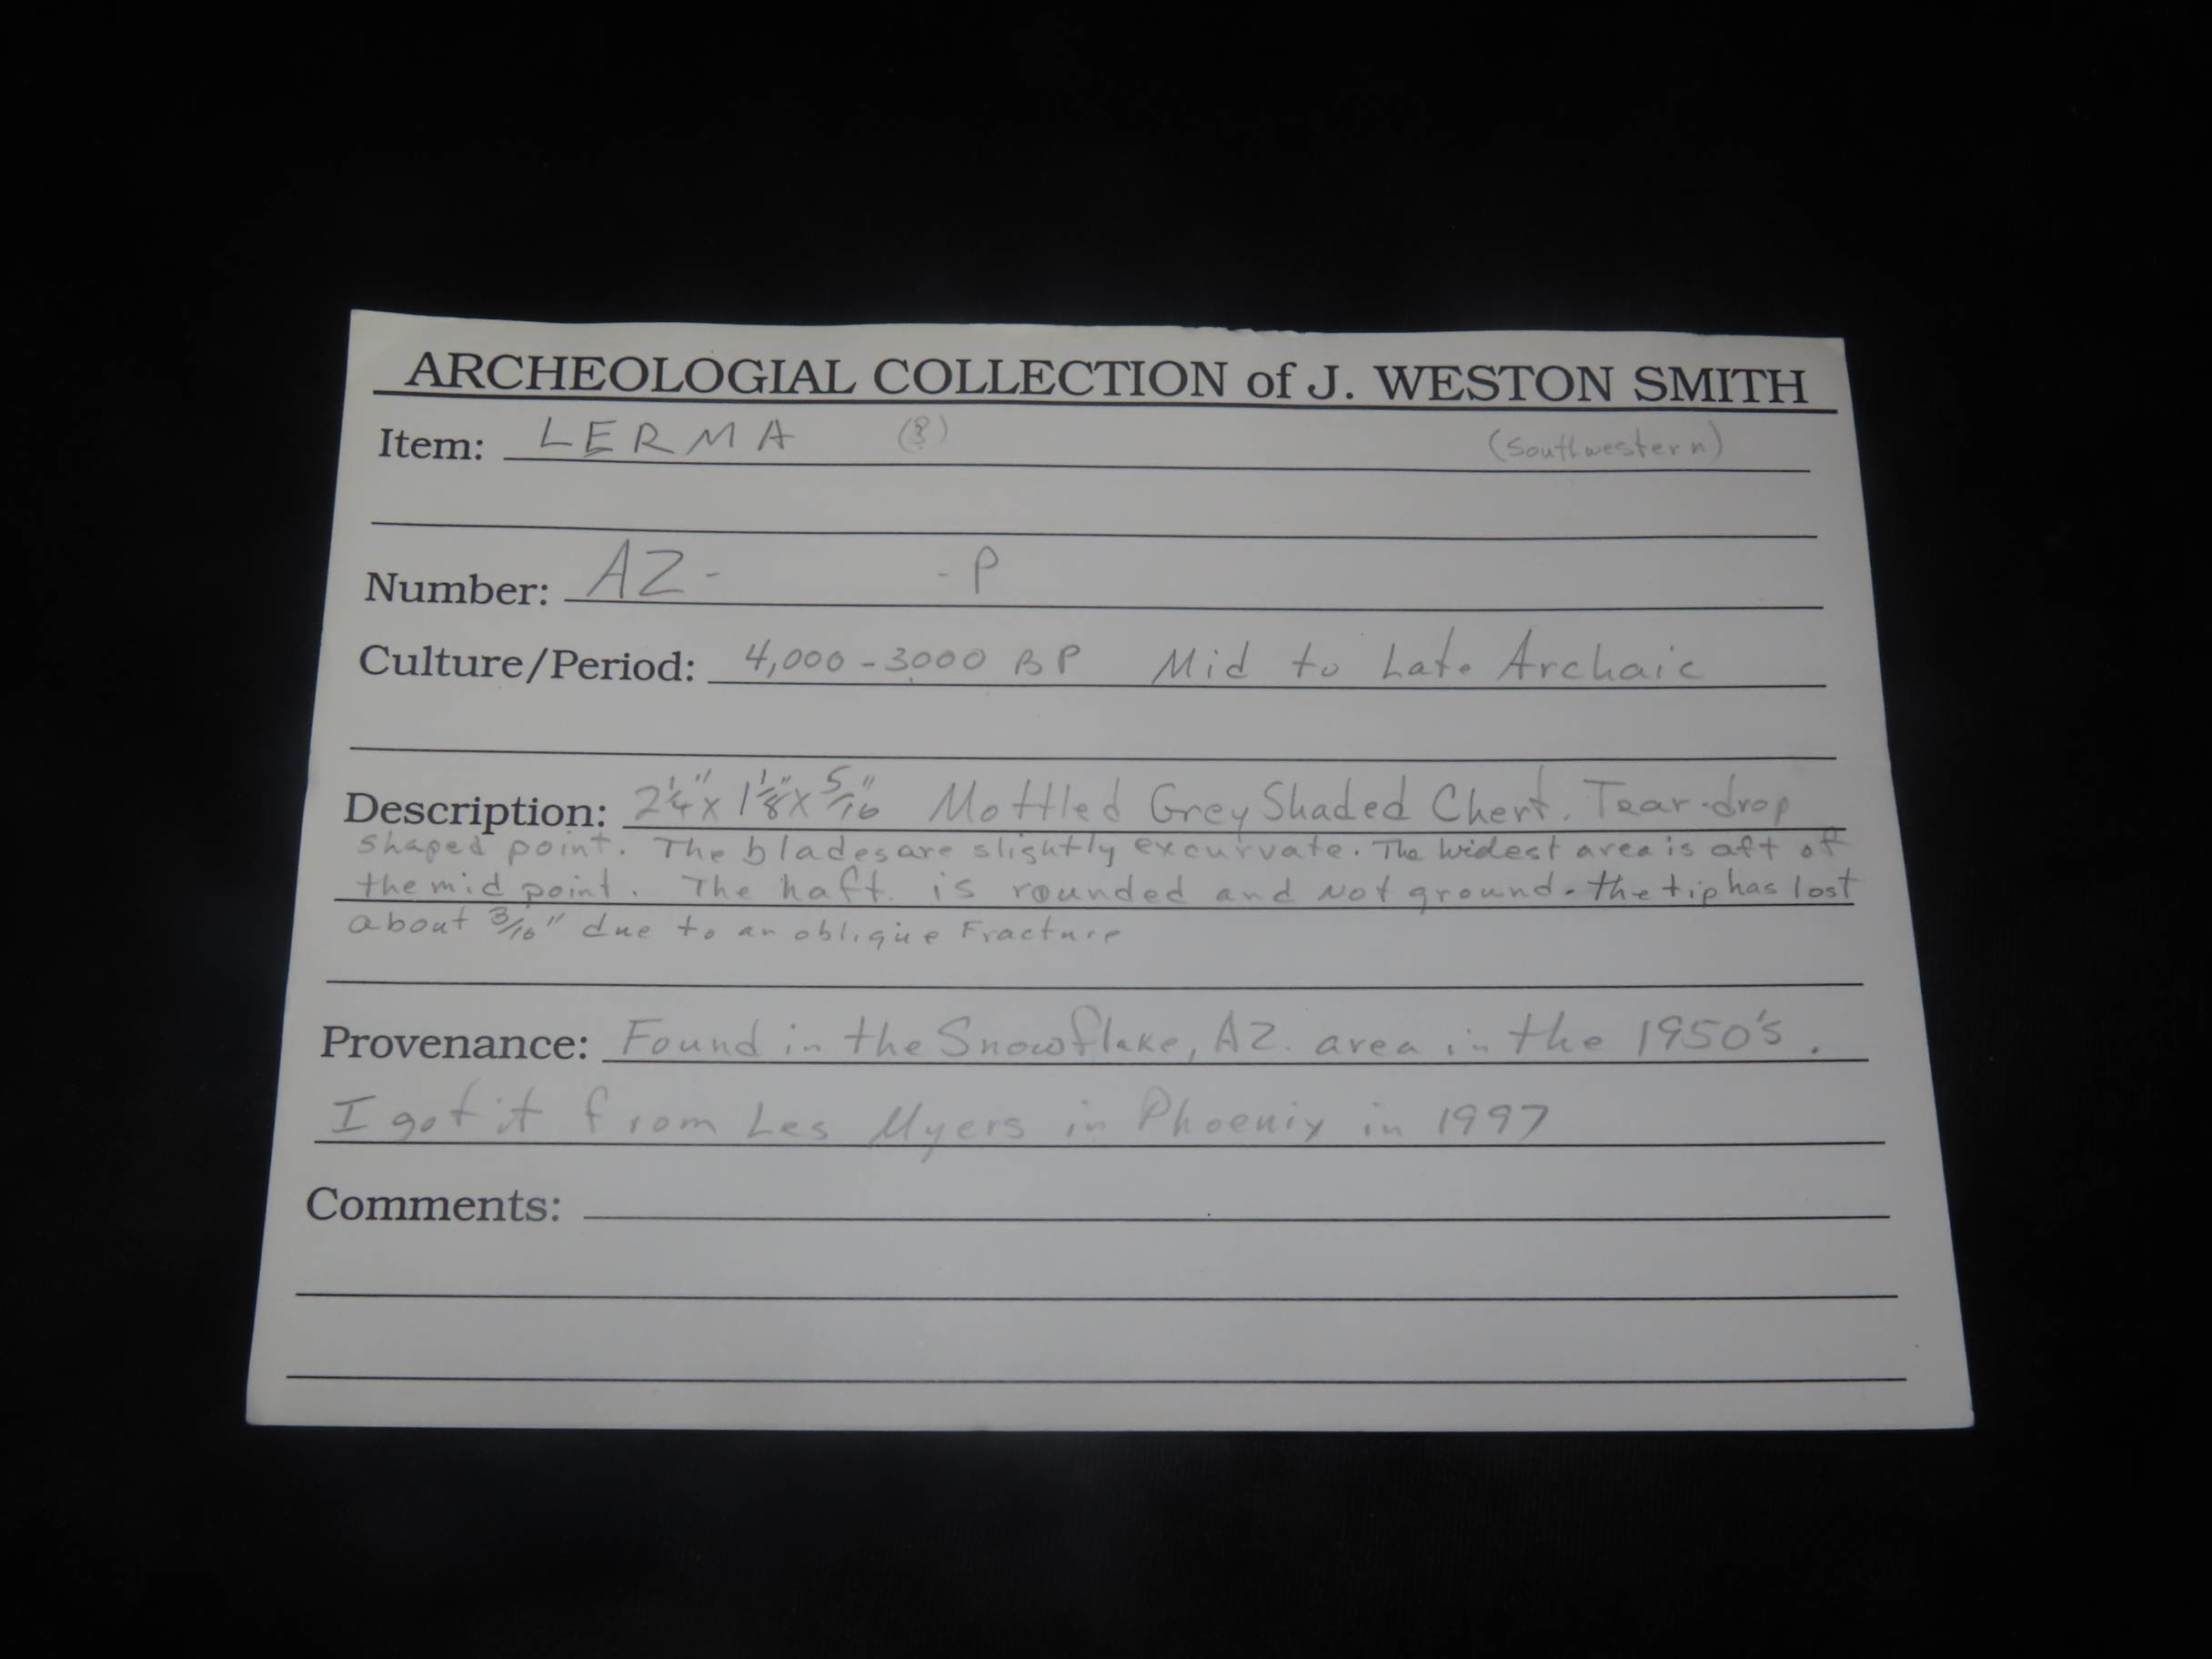 ARCHEOLOGIAL COLLECTION of J. WESTON SMITH
Item: LERMA (?) (Southwestern)
Number: AZ- -P
Culture/Period: 4,000-3000 BP Mid to Late Archaic
Description: 2 1/4" x 1 1/8" x 5/16" Mottled Grey Shaded Chert. Tear-drop
shaped point. The blades are slightly excurvate. The widest area is aft of
the mid point. The haft is rounded and not ground. the tip has lost
about 3/16" due to an oblique Fracture
Provenance: Found in the Snowflake, AZ. area in the 1950's.
I got it from Les Myers in Phoenix in 1997
Comments: